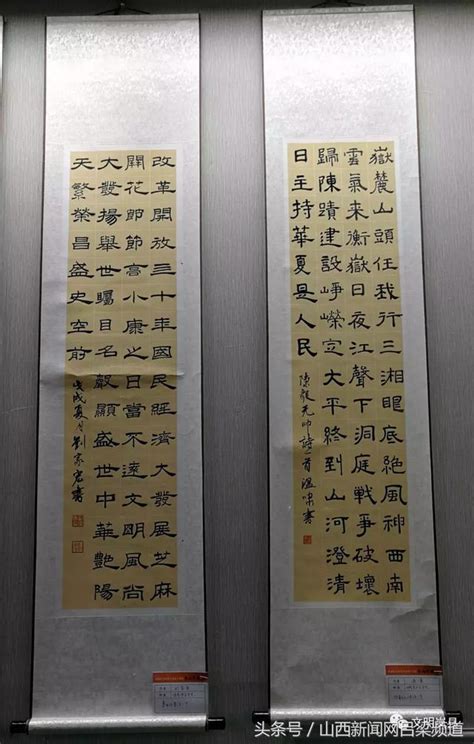 嶽麓山頭任我行三湘眼底絕風神西南
雲氣來衡嶽日夜江聲下洞庭戰爭破壞
歸陳蹟建設崢嶸定太平終到山河澄清
日主持華夏是人民
陳毅元帅詩一首溫書
改革開放三十年國民經濟大發展芝麻
開花節節高小康之日當不遠文明風尚
大發揚舉世矚目名聲顯盛世中華艷陽
天繁榮昌盛史空前
戊戌夏月劉家宏書
文明岚县
头条号 / 山西新闻网吕梁频道